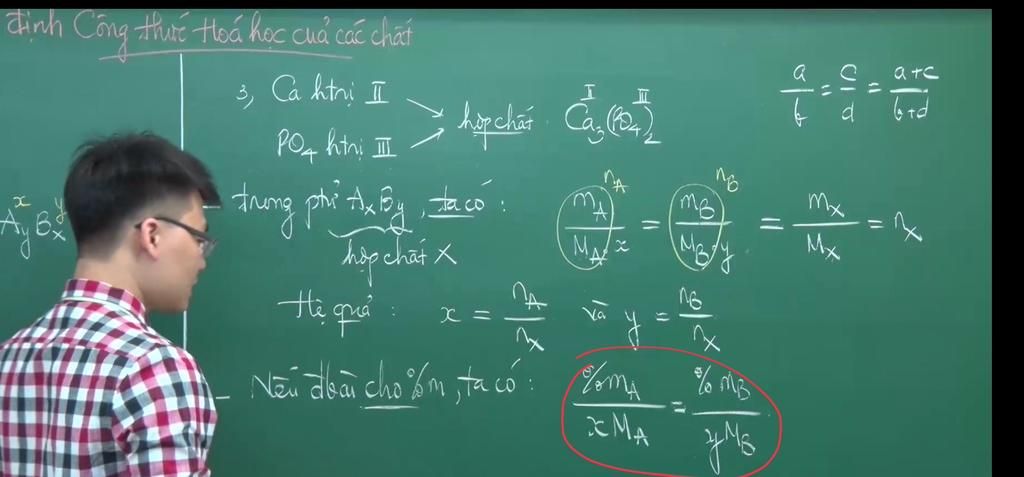 định Công thức Hoá học của các chất
3, Ca htrị II
PO4 htrị III
hợp chất Ca3(PO4)2
II III
a/b = c/d = (a+c)/(b+d)
x y
AyBx
— trong ptử AxBy, ta có:
hợp chất X
nA nB
mA/(MA·x) = mB/(MB·y) = mX/MX = nX
Hệ quả: x = nA/nX và y = nB/nX
— Nếu đbài cho %m, ta có: %mA/(xMA) = %mB/(yMB)